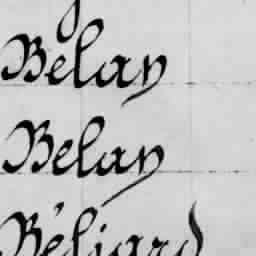 Belay
Belay
Béliard